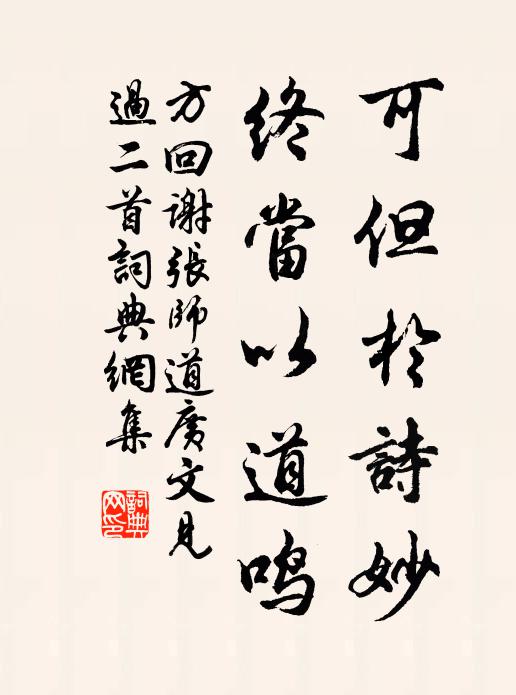 可但於詩妙
終當以道鳴
方回謝張師道廣文見
過二首詞典網集
詞典
网印